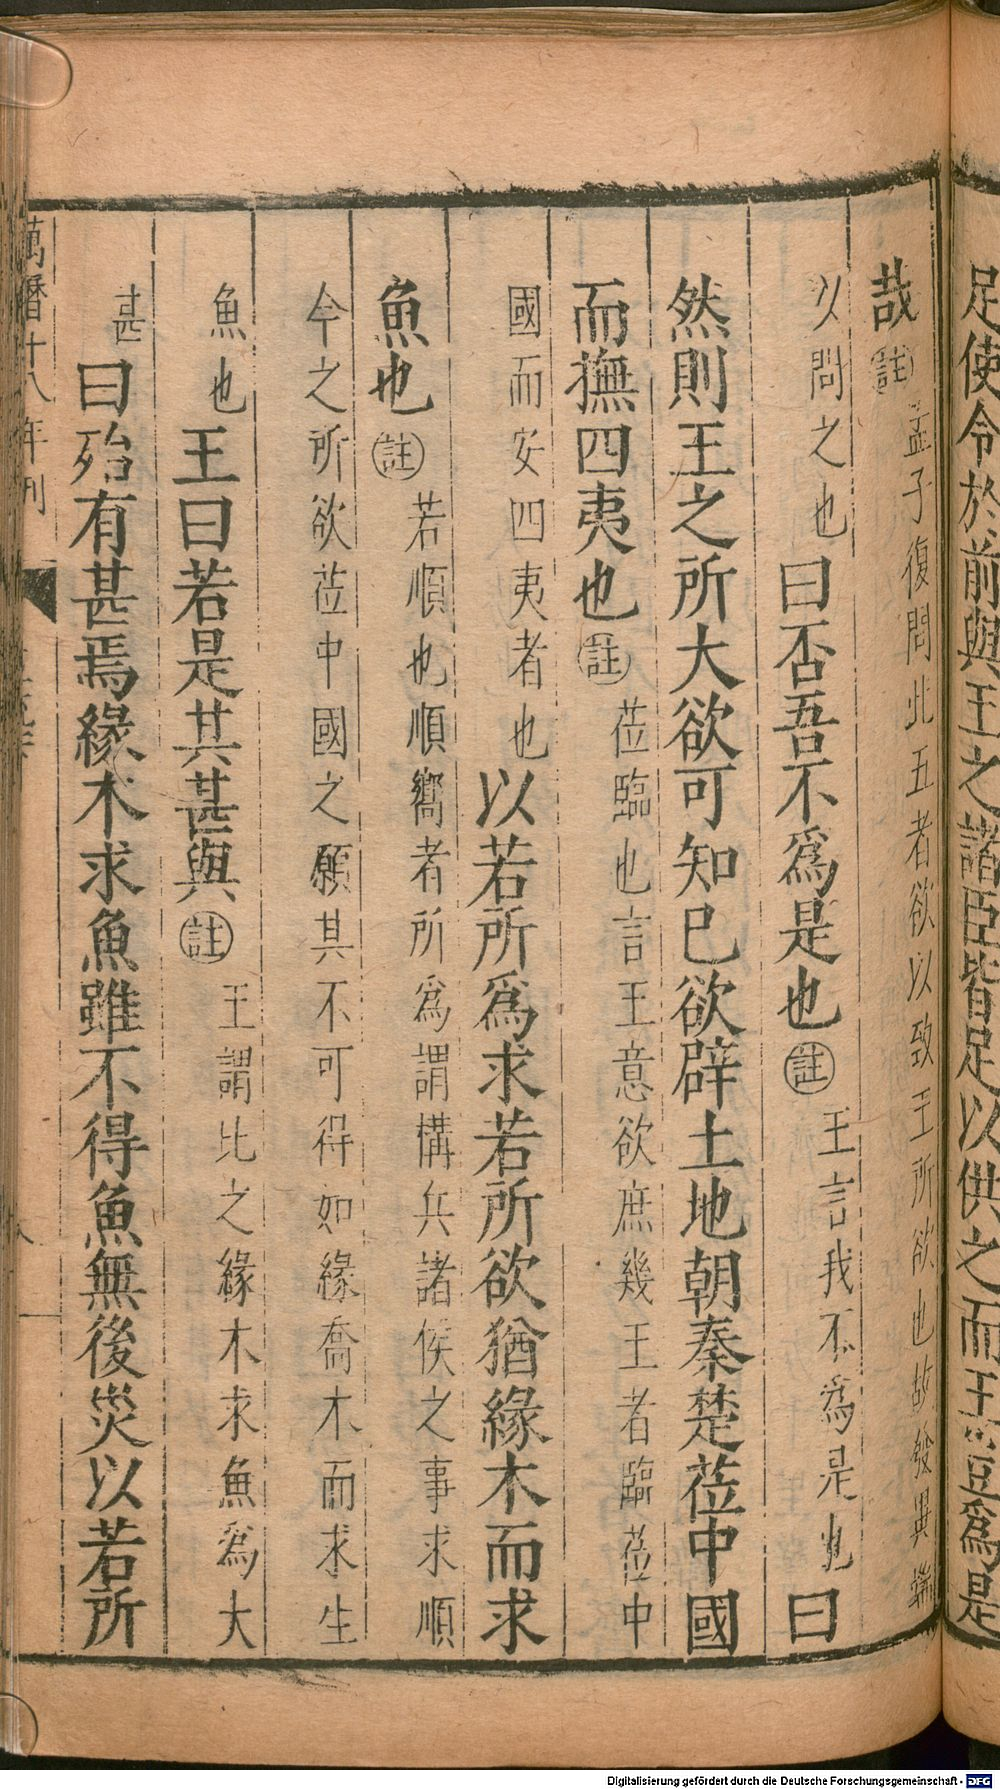 足使令於前與王之諸臣皆足以供之而王豈爲是
哉註孟子復問此五者欲以致王所欲也故發異端
以問之也曰否吾不爲是也註王言我不爲是也曰
然則王之所大欲可知已欲辟土地朝秦楚莅中國
而撫四夷也註莅臨也言王意欲庶幾王者臨莅中
國而安四夷者也以若所爲求若所欲猶緣木而求
魚也註若順也順嚮者所爲謂構兵諸侯之事求順
今之所欲莅中國之願其不可得如緣喬木而求生
魚也王曰若是其甚與註王謂比之緣木求魚爲大
甚曰殆有甚焉緣木求魚雖不得魚無後災以若所
萬曆十八年刊
Digitalisierung gefördert durch die Deutsche Forschungsgemeinschaft - DFG